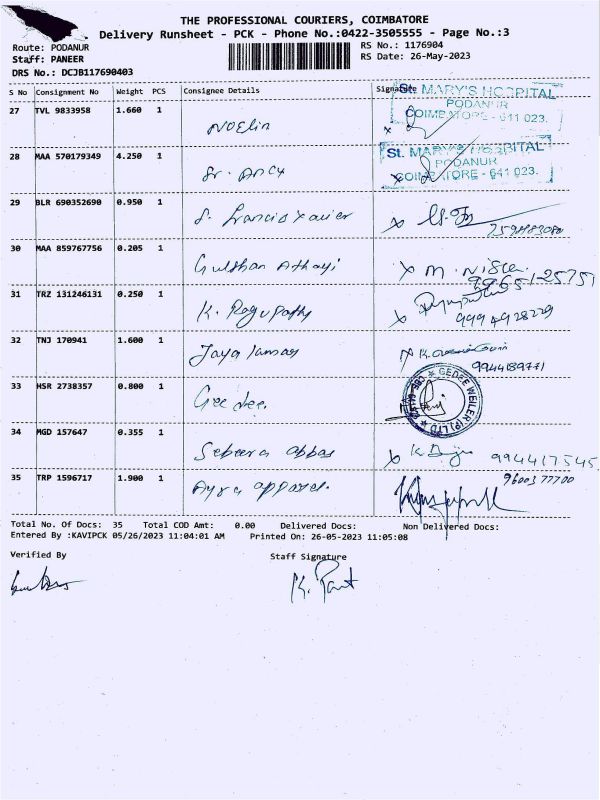 THE PROFESSIONAL COURIERS, COIMBATORE
Delivery Runsheet - PCK - Phone No.:0422-3505555 - Page No.:3
Route: PODANUR RS No.: 1176904
Staff: PANEER RS Date: 26-May-2023
DRS No.: DCJB117690403
S No Consignment No Weight PCS Consignee Details Signature
St. MARY'S HOSPITAL
PODANUR
COIMBATORE - 641 023.
27 TVL 9833958 1.660 1 Noelin
28 MAA 570179349 4.250 1 Sr. Ancy
St. MARY'S HOSPITAL
PODANUR
COIMBATORE - 641 023.
29 BLR 690352690 0.950 1 S. Francis Xavier
30 MAA 859767756 0.205 1 Gulshan Athayi
31 TRZ 131246131 0.250 1 K. Ragupathy
9994928229
32 TNJ 170941 1.600 1
33 HSR 2738357 0.800 1 Gee dee.
GEDEE WEILER (P) LTD
34 MGD 157647 0.355 1 Sabeera Abbas
9944177545
35 TRP 1596717 1.900 1 Ayra apparel.
9600377700
Total No. Of Docs: 35 Total COD Amt: 0.00 Delivered Docs: Non Delivered Docs:
Entered By :KAVIPCK 05/26/2023 11:04:01 AM Printed On: 26-05-2023 11:05:08
Verified By Staff Signature